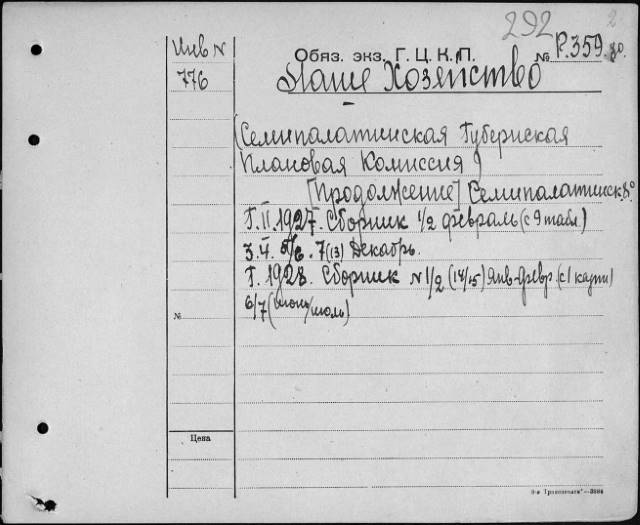 292
Инв N
776
Обяз. экз. Г. Ц. К. П. № Р.359 8°.
Наше Хозяйство
(Семипалатинская Губернская
Плановая Комиссия)
[Продолжение] Семипалатинск 8°
Г. II. 1927. Сборник 1/2 февраль (с 9 табл)
3. 4. 5/6. 7 (13) Декабрь.
Г. 1928. Сборник N 1/2 (14/15) янв-февр (с 1 карт)
6/7 (июнь/июль)
№
Цена